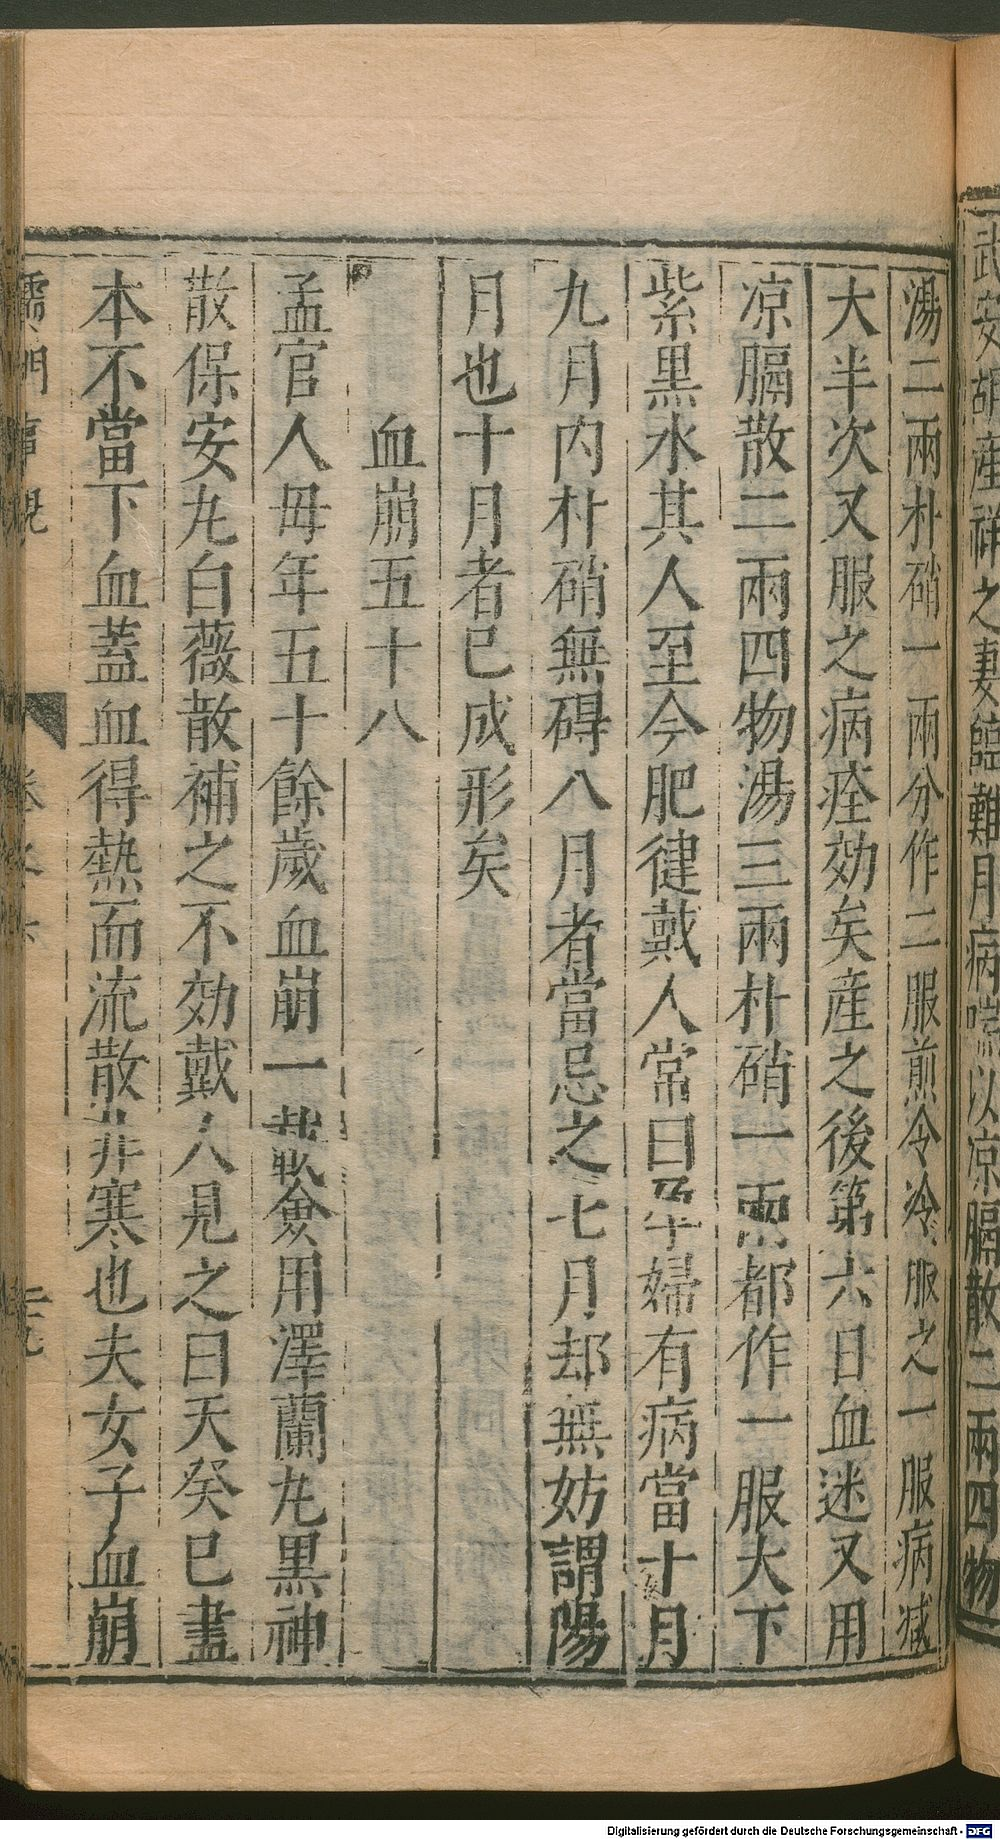 武安胡産祥之妻臨難月病喘以凉膈散二兩四物
湯二兩朴硝一兩分作二服煎令冷服之一服病減
大半次又服之病痊効矣産之後第六日血迷又用
凉膈散二兩四物湯三兩朴硝一兩都作一服大下
紫黑水其人至今肥健戴人常曰孕婦有病當十月
九月内朴硝無碍八月者當忌之七月却無妨謂陽
月也十月者已成形矣
血崩五十八
孟官人母年五十餘歲血崩一載僉用澤蘭丸黑神
散保安丸白薇散補之不効戴人見之曰天癸已盡
本不當下血蓋血得熱而流散非寒也夫女子血崩
儒門事親
卷之六
Digitalisierung gefördert durch die Deutsche Forschungsgemeinschaft - DFG